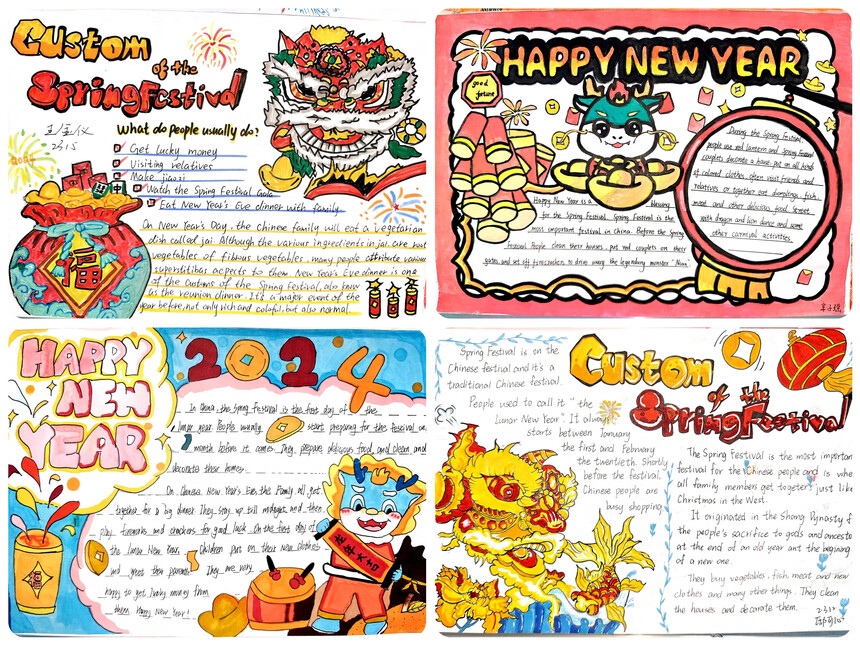 Custom
of the
Spring Festival
What do people usually do?
Get lucky money
Visiting relatives
Make jiaozi
Watch the Spring Festival Gala
Eat New Year's Eve dinner with family
福
On New Year's Day, the chinese family will eat a vegetarian
dish called jai. Although the various ingredients in jai are root
vegetables of fibous vegetables, many people attribute various
superstitibas acpects to them New Year's Eve dinner is one
of the customs of the Spring Festival, also know
as the reunion dinner. It's a major event of the
year before, not only rich and coloful, but also normal.
HAPPY NEW YEAR
good
fotune
Happy New Year is a blessing
for the Spring Festival. Spring Festival is the
most important festival in China. Before the Spring
Festival People clean their houses, put red couplets on their
gates, and set off firecrackers to drive away the legendary monster "Nian"
During the Spring Festival,
people use red lantern and Spring Festival
couplets decorate a house, put on all kind
of colored clothes, often visit friends and
relatives or together eat dumplings, fish,
meat and other delicious food. Street
with dragon and lion dance and some
other carnival activities.
HAPPY
NEW
YEAR
2024
In China, the Spring Festival is the first day of the
lunar year. People usually start preparing for the festival one
month before it comes. They prepare delicious food, and clean and
decorate their homes.
On Chinese New Year's Eve, the Family all get
together for a big dinner. They stay up till midnight, and then
play fireworks and crackers for good luck. On the first day of
the lunar New Year, Children put on their new clothes
and greet their parents. They are very
happy to get lucky money from
them. Happy New Year!
龙年大吉
Spring Festival is on the
Chinese festival and it's a
traditional Chinese festival.
People used to call it "the
Lunar New Year". It always
starts between January
the first and February
the twentieth. Shortly
before the festival,
Chinese people are
busy shopping.
Custom
of the
Spring Festival
The Spring Festival is the most important
festival for the Chinese people and is when
all family members get togeter, just like
Christmas in the West.
It originated in the Shang Dynasty f
the people's sacrifice to gods and ancestor
at the end of an old year ant the begining
of a new one.
They buy vegetables, fish meat and new
clothes and many other things. They clean
the houses and decorate them.